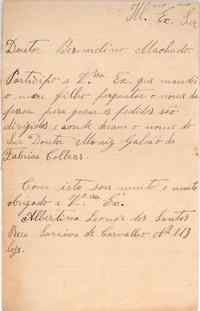 Il. Ex. Snr
Doutor Bernardino Machado
Participo a V.ª Ex. que mandei
o meu filho perguntar o nome da
pessoa para quem os pedidos são
dirigidos e onde deram o nome do
Snr Doutor Moniz Galvão
Fabrica Collens
Com isto sou muito e muito
obrigado a V.ª Ex.
Albertina Leonor dos Santos
Rua Saraiva de Carvalho Nº 113
loja